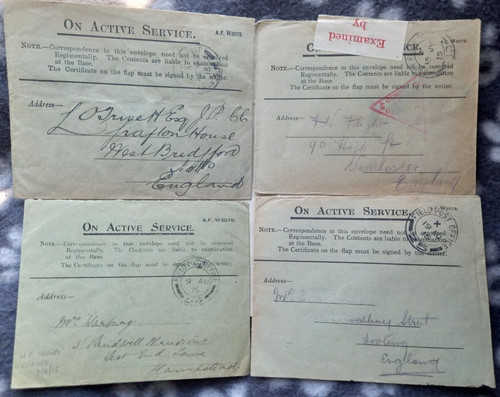 ON ACTIVE SERVICE.
A.F. W3078.
NOTE.—Correspondence in this envelope need not be censored
Regimentally. The Contents are liable to examination
at the Base.
The Certificate on the flap must be signed by the writer.
Address—
Esq J.P. CC
Grafton House
West Bridgford
Notts
England
Examined
by
SERVICE.
W3078
NOTE.—Correspondence in this envelope need not be censored
Regimentally. The Contents are liable to examination
at the Base.
The Certificate on the flap must be signed by the writer.
Address—
90 High St
Manchester
England
ON ACTIVE SERVICE.
A.F. W3078.
NOTE.—Correspondence in this envelope need not be censored
Regimentally. The Contents are liable to examination
at the Base.
The Certificate on the flap must be signed by the writer.
Address—
Mrs
Mansions
West End Lane
Hampstead
ON ACTIVE SERVICE.
W3078.
NOTE.—Correspondence in this envelope need not be censored
Regimentally. The Contents are liable to examination
at the Base.
The Certificate on the flap must be signed by the writer.
FIELD POST OFFICE
Address—
Street
Tooting
England